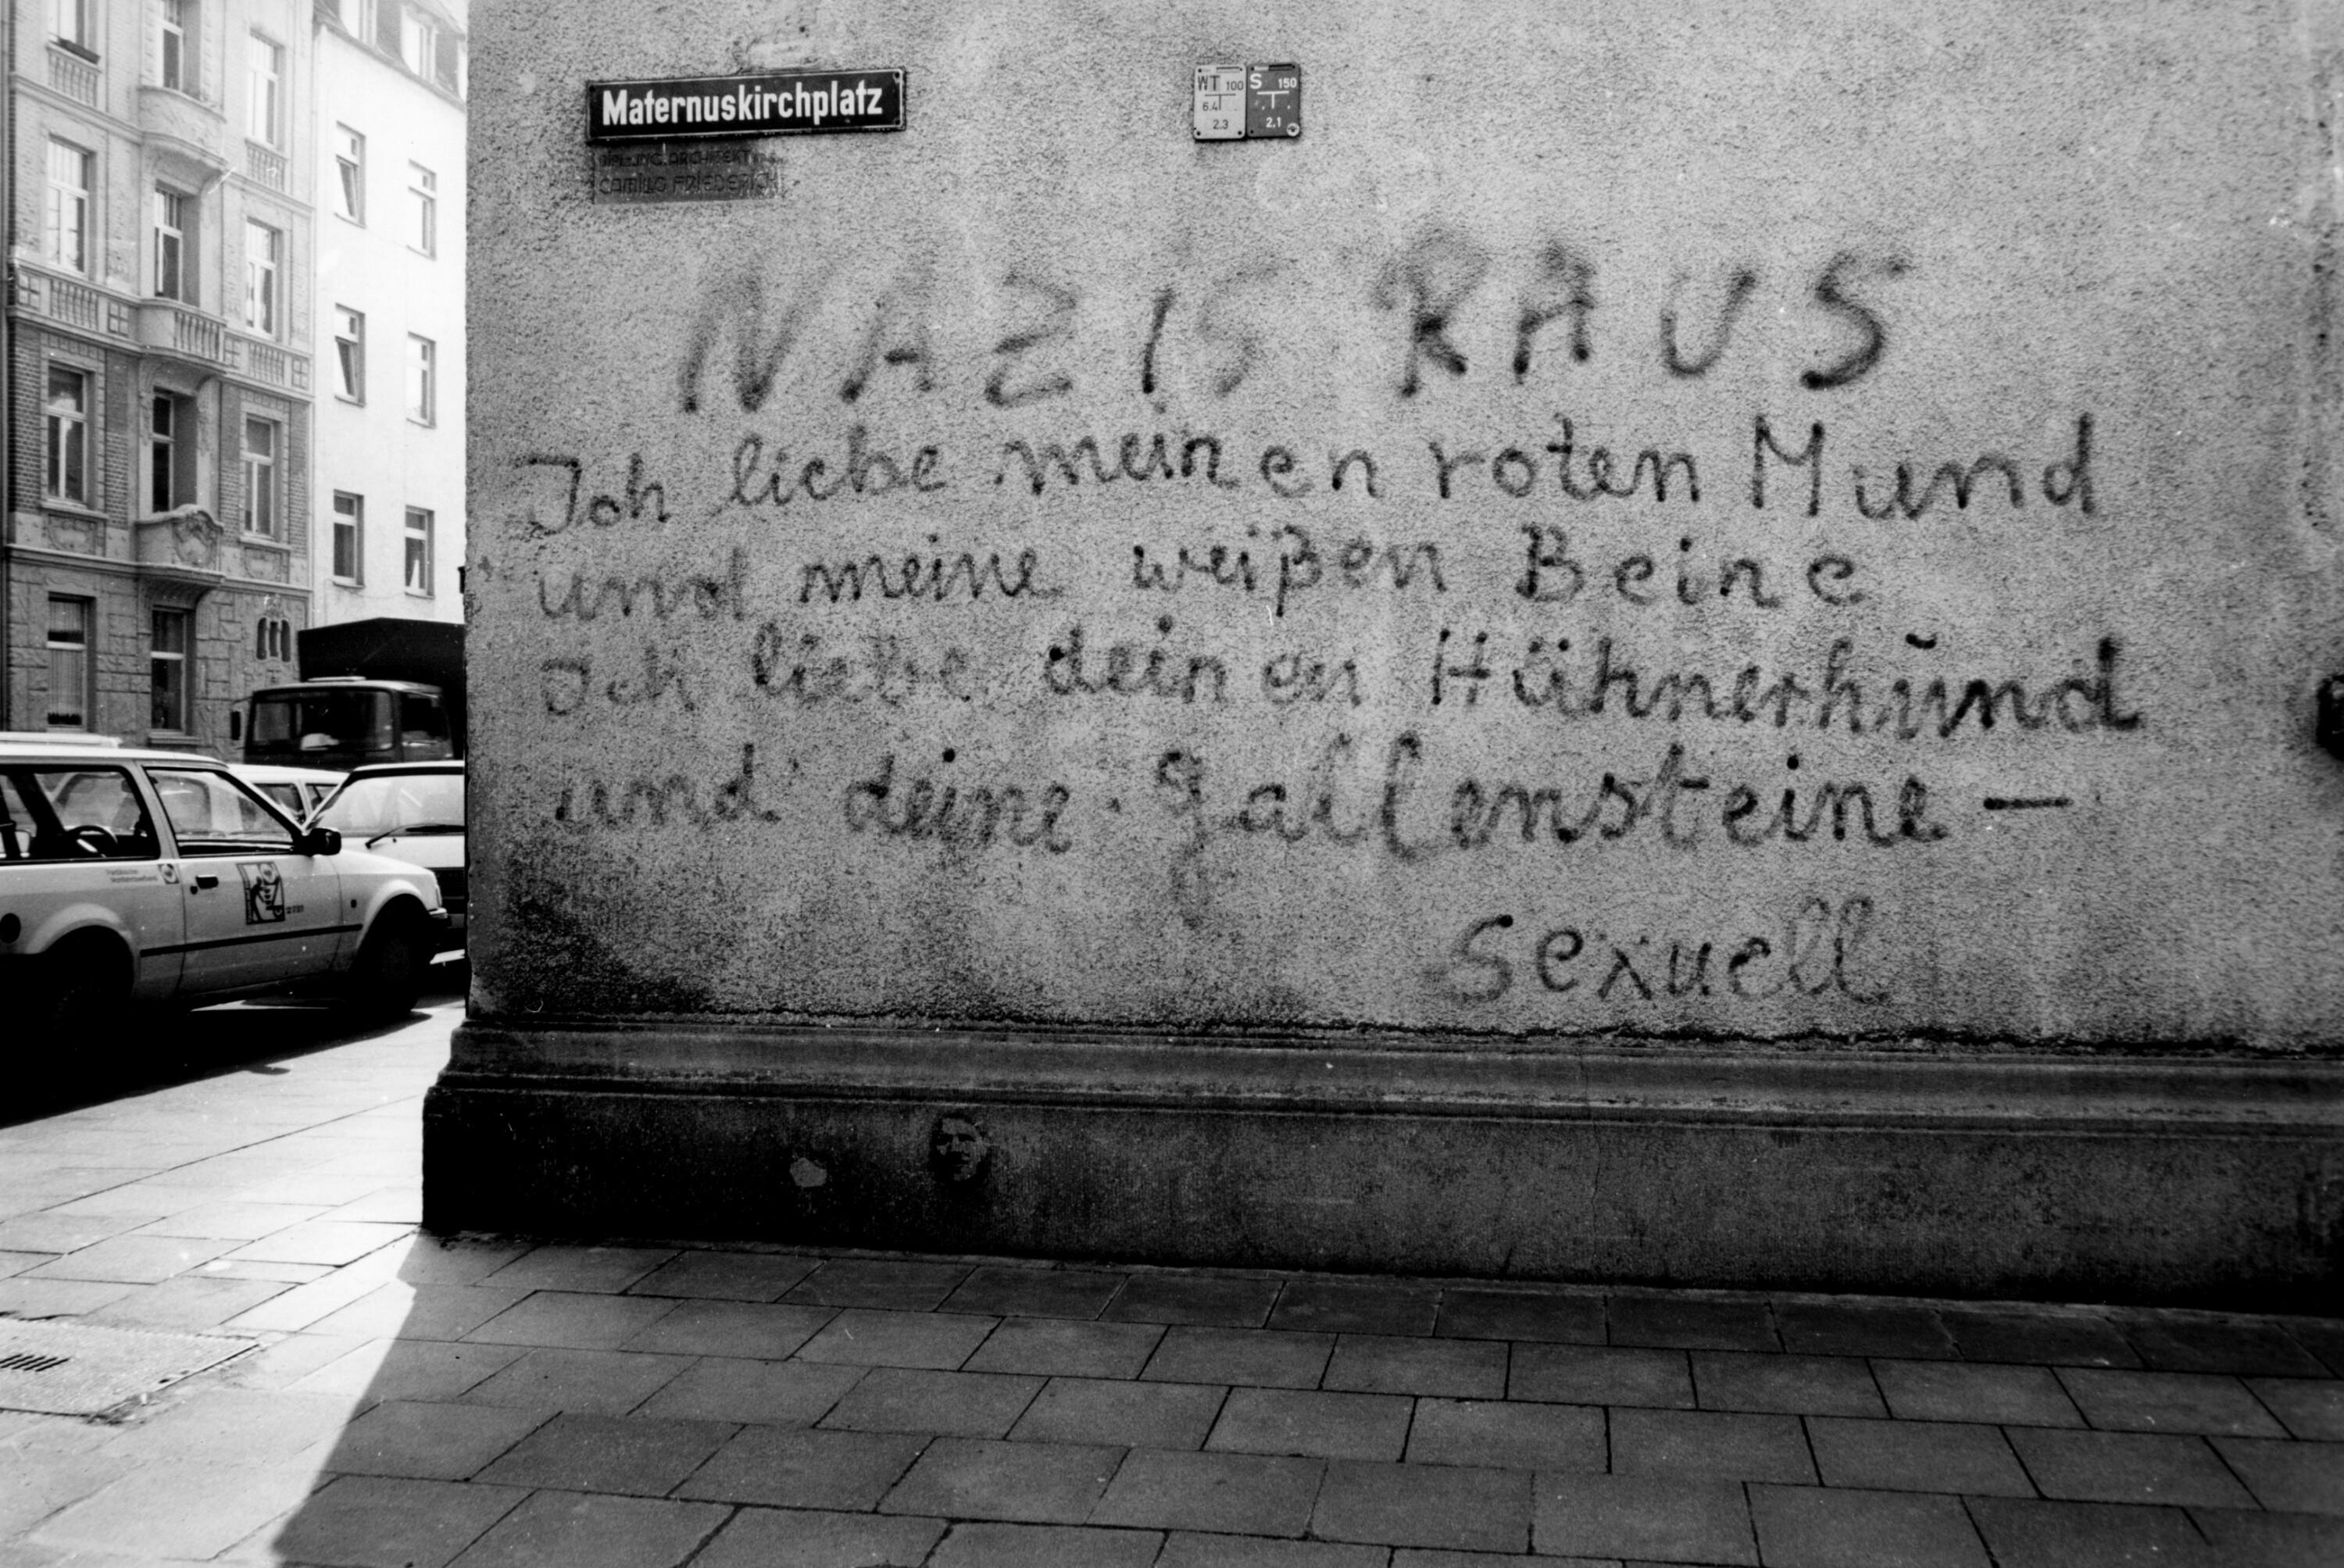 Maternuskirchplatz
WT 100
6.4
2.3
S 150
2.1
DIPL.ING. ARCHITEKT
CAMILLO FRIEDERICH
NAZIS RAUS
Ich liebe meinen roten Mund
und meine weißen Beine
Ich liebe deinen Hühnerhund
und deine gallensteine —
sexuell